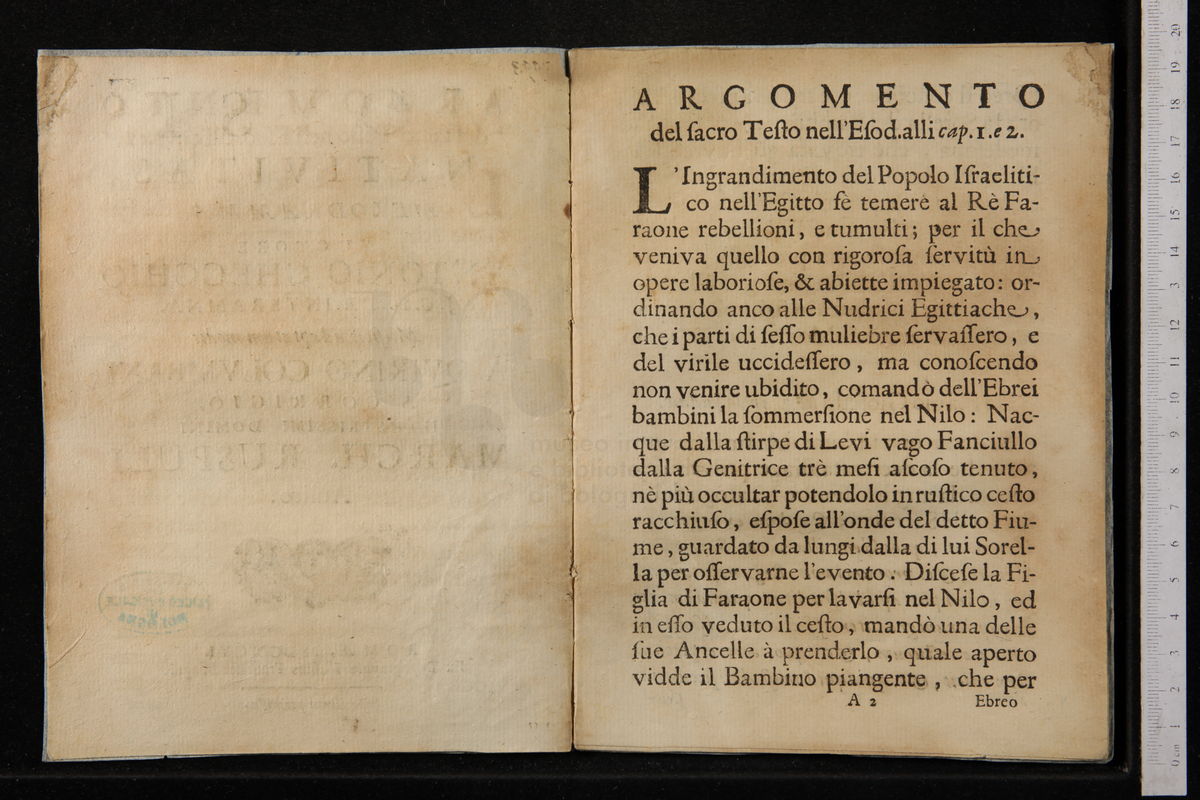 ARGOMENTO
del ſacro Teſto nell'Eſod. alli cap. 1. e 2.
L'Ingrandimento del Popolo Iſraeliti-
co nell'Egitto fè temere al Rè Fa-
raone rebellioni, e tumulti; per il che
veniva quello con rigoroſa ſervitù in
opere laborioſe, & abiette impiegato: or-
dinando anco alle Nudrici Egittiache,
che i parti di ſeſſo muliebre ſervaſſero, e
del virile uccideſſero, ma conoſcendo
non venire ubidito, comandò dell'Ebrei
bambini la ſommerſione nel Nilo: Nac-
que dalla ſtirpe di Levi vago Fanciullo
dalla Genitrice trè meſi aſcoſo tenuto,
nè più occultar potendolo in ruſtico ceſto
racchiuſo, eſpoſe all'onde del detto Fiu-
me, guardato da lungi dalla di lui Sorel-
la per oſſervarne l'evento. Diſceſe la Fi-
glia di Faraone per lavarſi nel Nilo, ed
in eſſo veduto il ceſto, mandò una delle
ſue Ancelle à prenderlo, quale aperto
vidde il Bambino piangente, che per
A 2
Ebreo